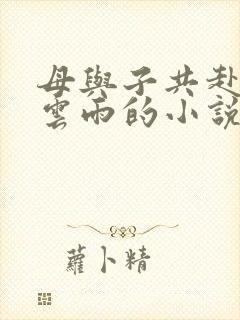 母與子共赴
雲雨的小說
蘿卜精